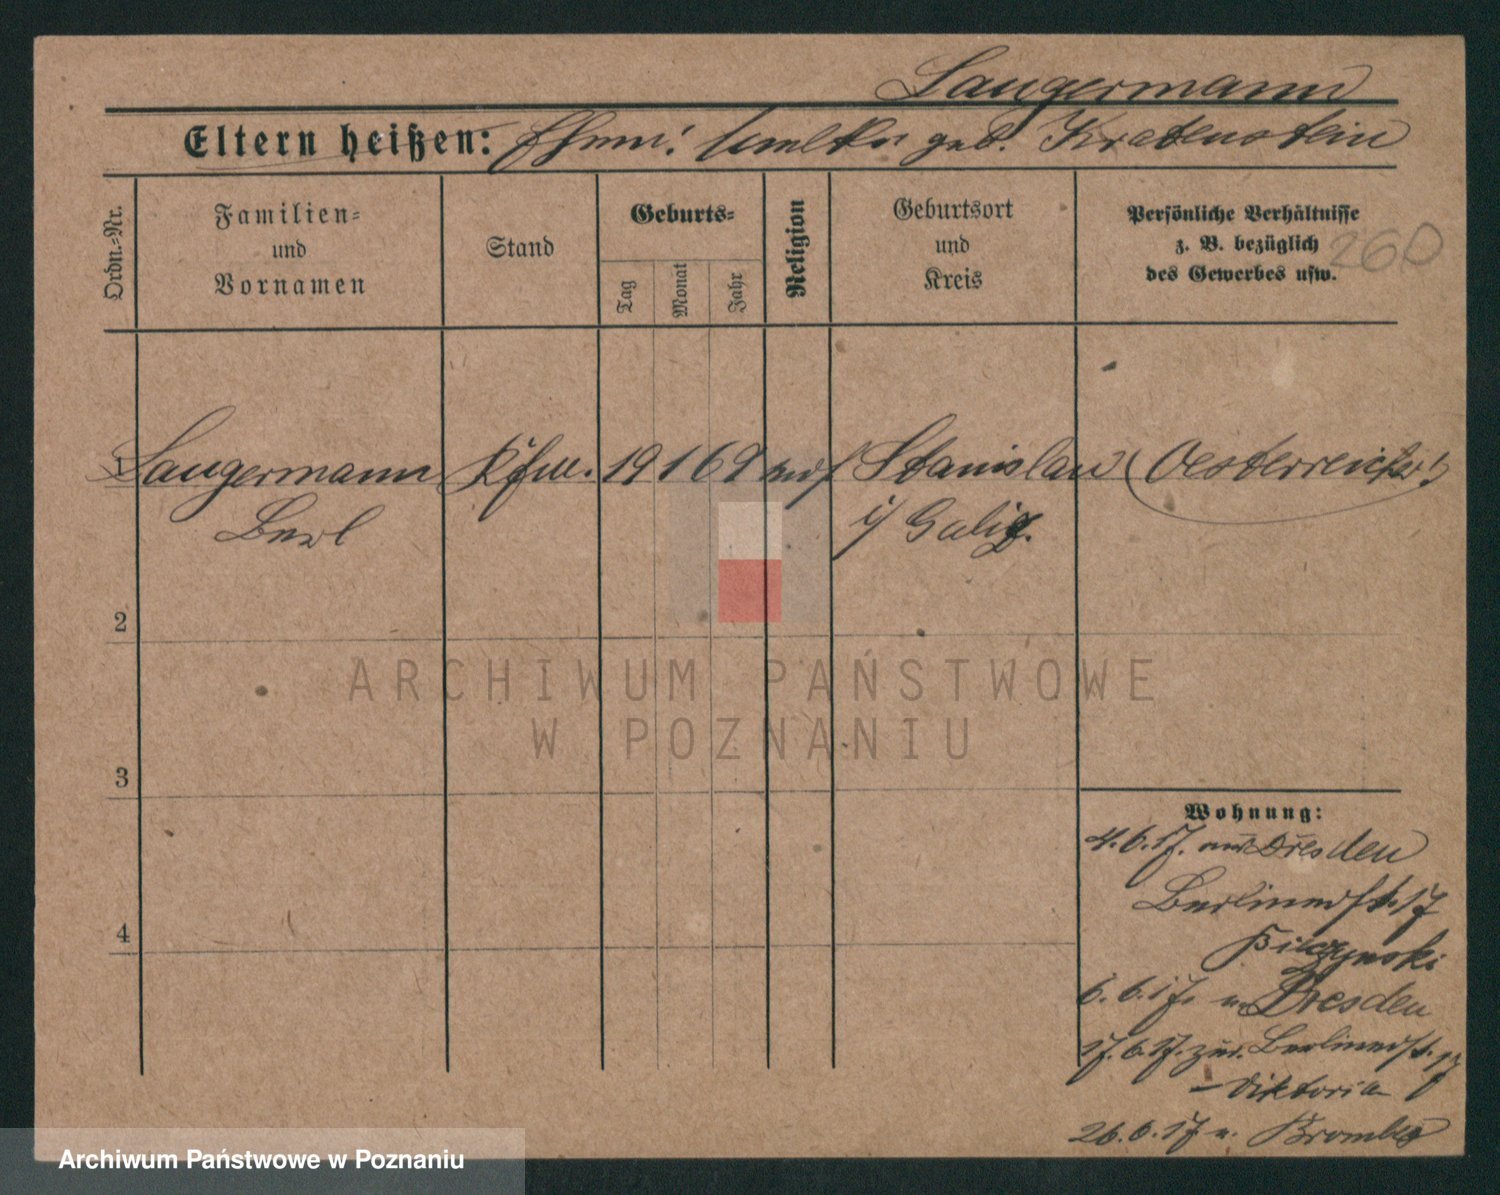 Langermann
Eltern heißen: geb. Kratenstein
Ordn.-Nr.
Familien-
und
Vornamen
Stand
Geburts-
Tag
Monat
Jahr
Religion
Geburtsort
und
Kreis
Persönliche Verhältnisse
z. B. bezüglich
des Gewerbes usw.
260
1 Langermann Kfm. 19 1 69 mos Stanislau (Oesterreicher!)
Berl i/ Galiz.
2
3
4
Wohnung:
4.6.17. aus Dresden
Berlinerstr. 17
6.6.17. n. Dresden
17.6.17. zur. Berlinerstr. 17
- Viktoria
26.6.17 n. Bromberg
ARCHIWUM PAŃSTWOWE
W POZNANIU
Archiwum Państwowe w Poznaniu